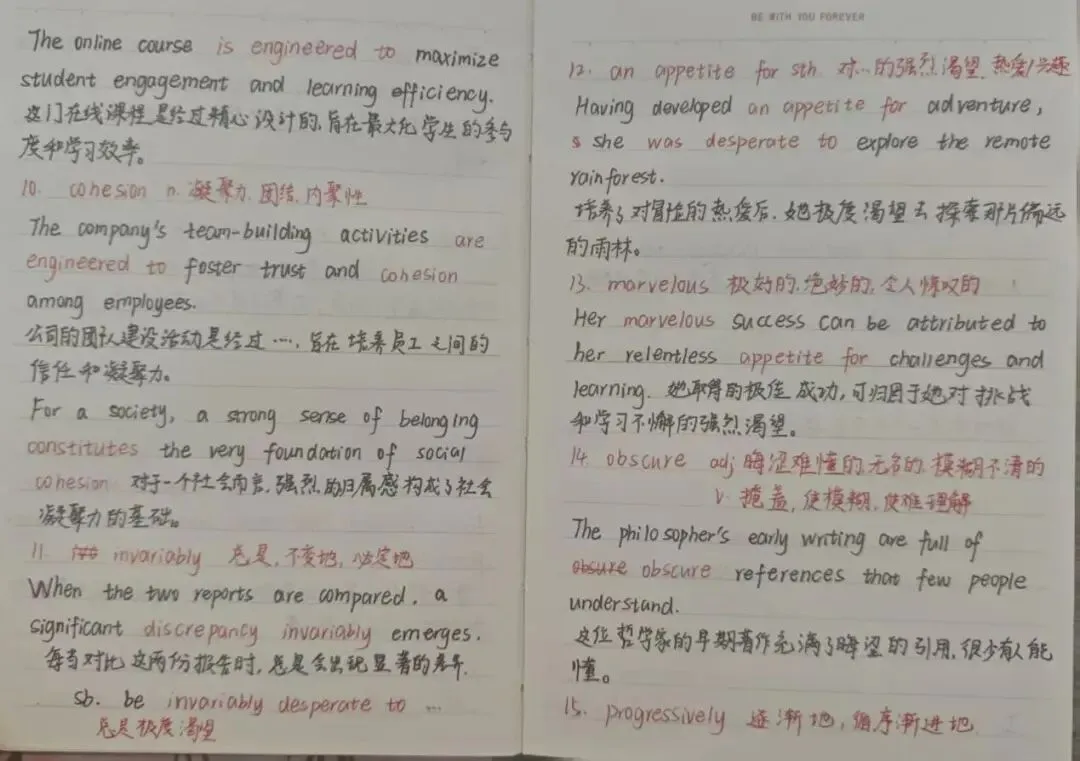 The online course is engineered to maximize
student engagement and learning efficiency.
这门在线课程是经过精心设计的,旨在最大化学生的参与
度和学习效率。
10. cohesion n. 凝聚力,团结,内聚性
The company's team-building activities are
engineered to foster trust and cohesion
among employees.
公司的团队建设活动是经过…,旨在培养员工之间的
信任和凝聚力。
For a society, a strong sense of belonging
constitutes the very foundation of social
cohesion 对于一个社会而言,强烈的归属感构成了社会
凝聚力的基础。
11. invariably 总是,不变地,必定地
When the two reports are compared, a
significant discrepancy invariably emerges.
每当对比这两份报告时,总是会出现显著的差异.
sb. be invariably desperate to …
总是极度渴望
BE WITH YOU FOREVER
12. an appetite for sth. 对…的强烈渴望,热爱/兴趣
Having developed an appetite for adventure,
she was desperate to explore the remote
rainforest.
培养了对冒险的热爱后,她极度渴望去探索那片偏远
的雨林。
13. marvelous 极好的,绝妙的,令人惊叹的
Her marvelous success can be attributed to
her relentless appetite for challenges and
learning. 她取得的极佳成功,可归因于她对挑战
和学习不懈的强烈渴望。
14. obscure adj 晦涩难懂的,无名的,模糊不清的
v. 掩盖,使模糊,使难理解
The philosopher's early writing are full of
obsure obscure references that few people
understand.
这位哲学家的早期著作充满了晦涩的引用,很少有人能
懂。
15. progressively 逐渐地,循序渐进地